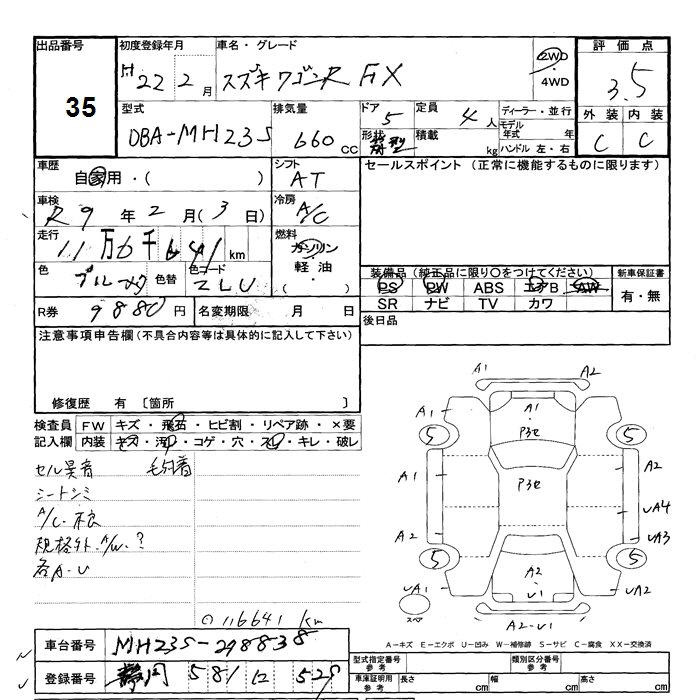 出品番号
35
初度登録年月
H22 2月
車名・グレード
スズキ ワゴンR FX
2WD
・
4WD
評価点
3.5
外装 内装
C C
型式
DBA-MH23S
排気量
660 CC
ドア
5
形状
定員
4人
積載
kg
ディーラー・並行
モデル
年式 年
ハンドル 左・右
車歴
自家用・( )
シフト
AT
セールスポイント (正常に機能するものに限ります)
車検
R9年2月(3日)
冷房
A/C
走行
11万6千641km
燃料
ガソリン
軽油
・
色
色替
色コード
ZJU
装備品 (純正品に限り○をつけてください)
PS PW ABS エアB AW
SR ナビ TV カワ
新車保証書
有・無
R券
9880円
名変期限 月 日
後日品
注意事項申告欄(不具合内容等は具体的に記入して下さい)
修復歴 有 〔箇所 〕
検査員
記入欄
FW キズ・飛石・ヒビ割・リペア跡・×要
内装 キズ・汚れ・コゲ・穴・スレ・キレ・破レ
セル異音
シートシミ
A/C.不良
規格外.A/W.?
各A.U
116641km
A1
A2
A1
A1
5
5
P3セ
A1
P3セ
A2
UA4
A2
UA3
5
5
A2
U1
UA1
UA2
スペア
A2-U1
A-キズ E-エクボ U-凹み W-補修跡 S-サビ C-腐食 XX-交換済
車台番号
MH23S-298838
登録番号
静岡 581 529
型式指定番号
参考
類別区分番号
参考
車庫証明用
参考
長さ cm
幅 cm
高さ cm